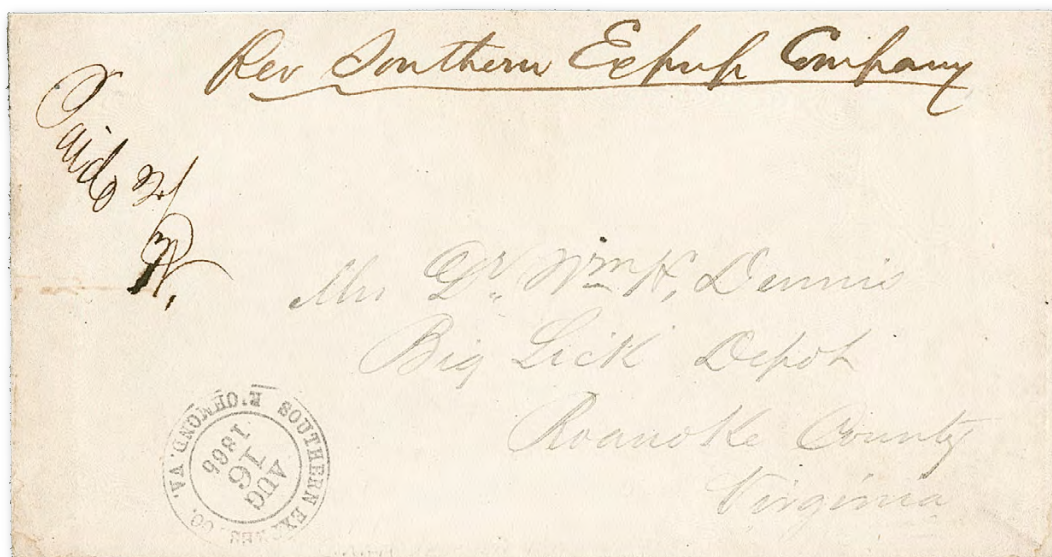 Per Southern Express Company
Paid 2/
Mrs Dr. Wm H. Dennis
Big Lick Depot
Roanoke County
Virginia
SOUTHERN EXPRESS CO. RICHMOND. VA.
AUG
16
1865